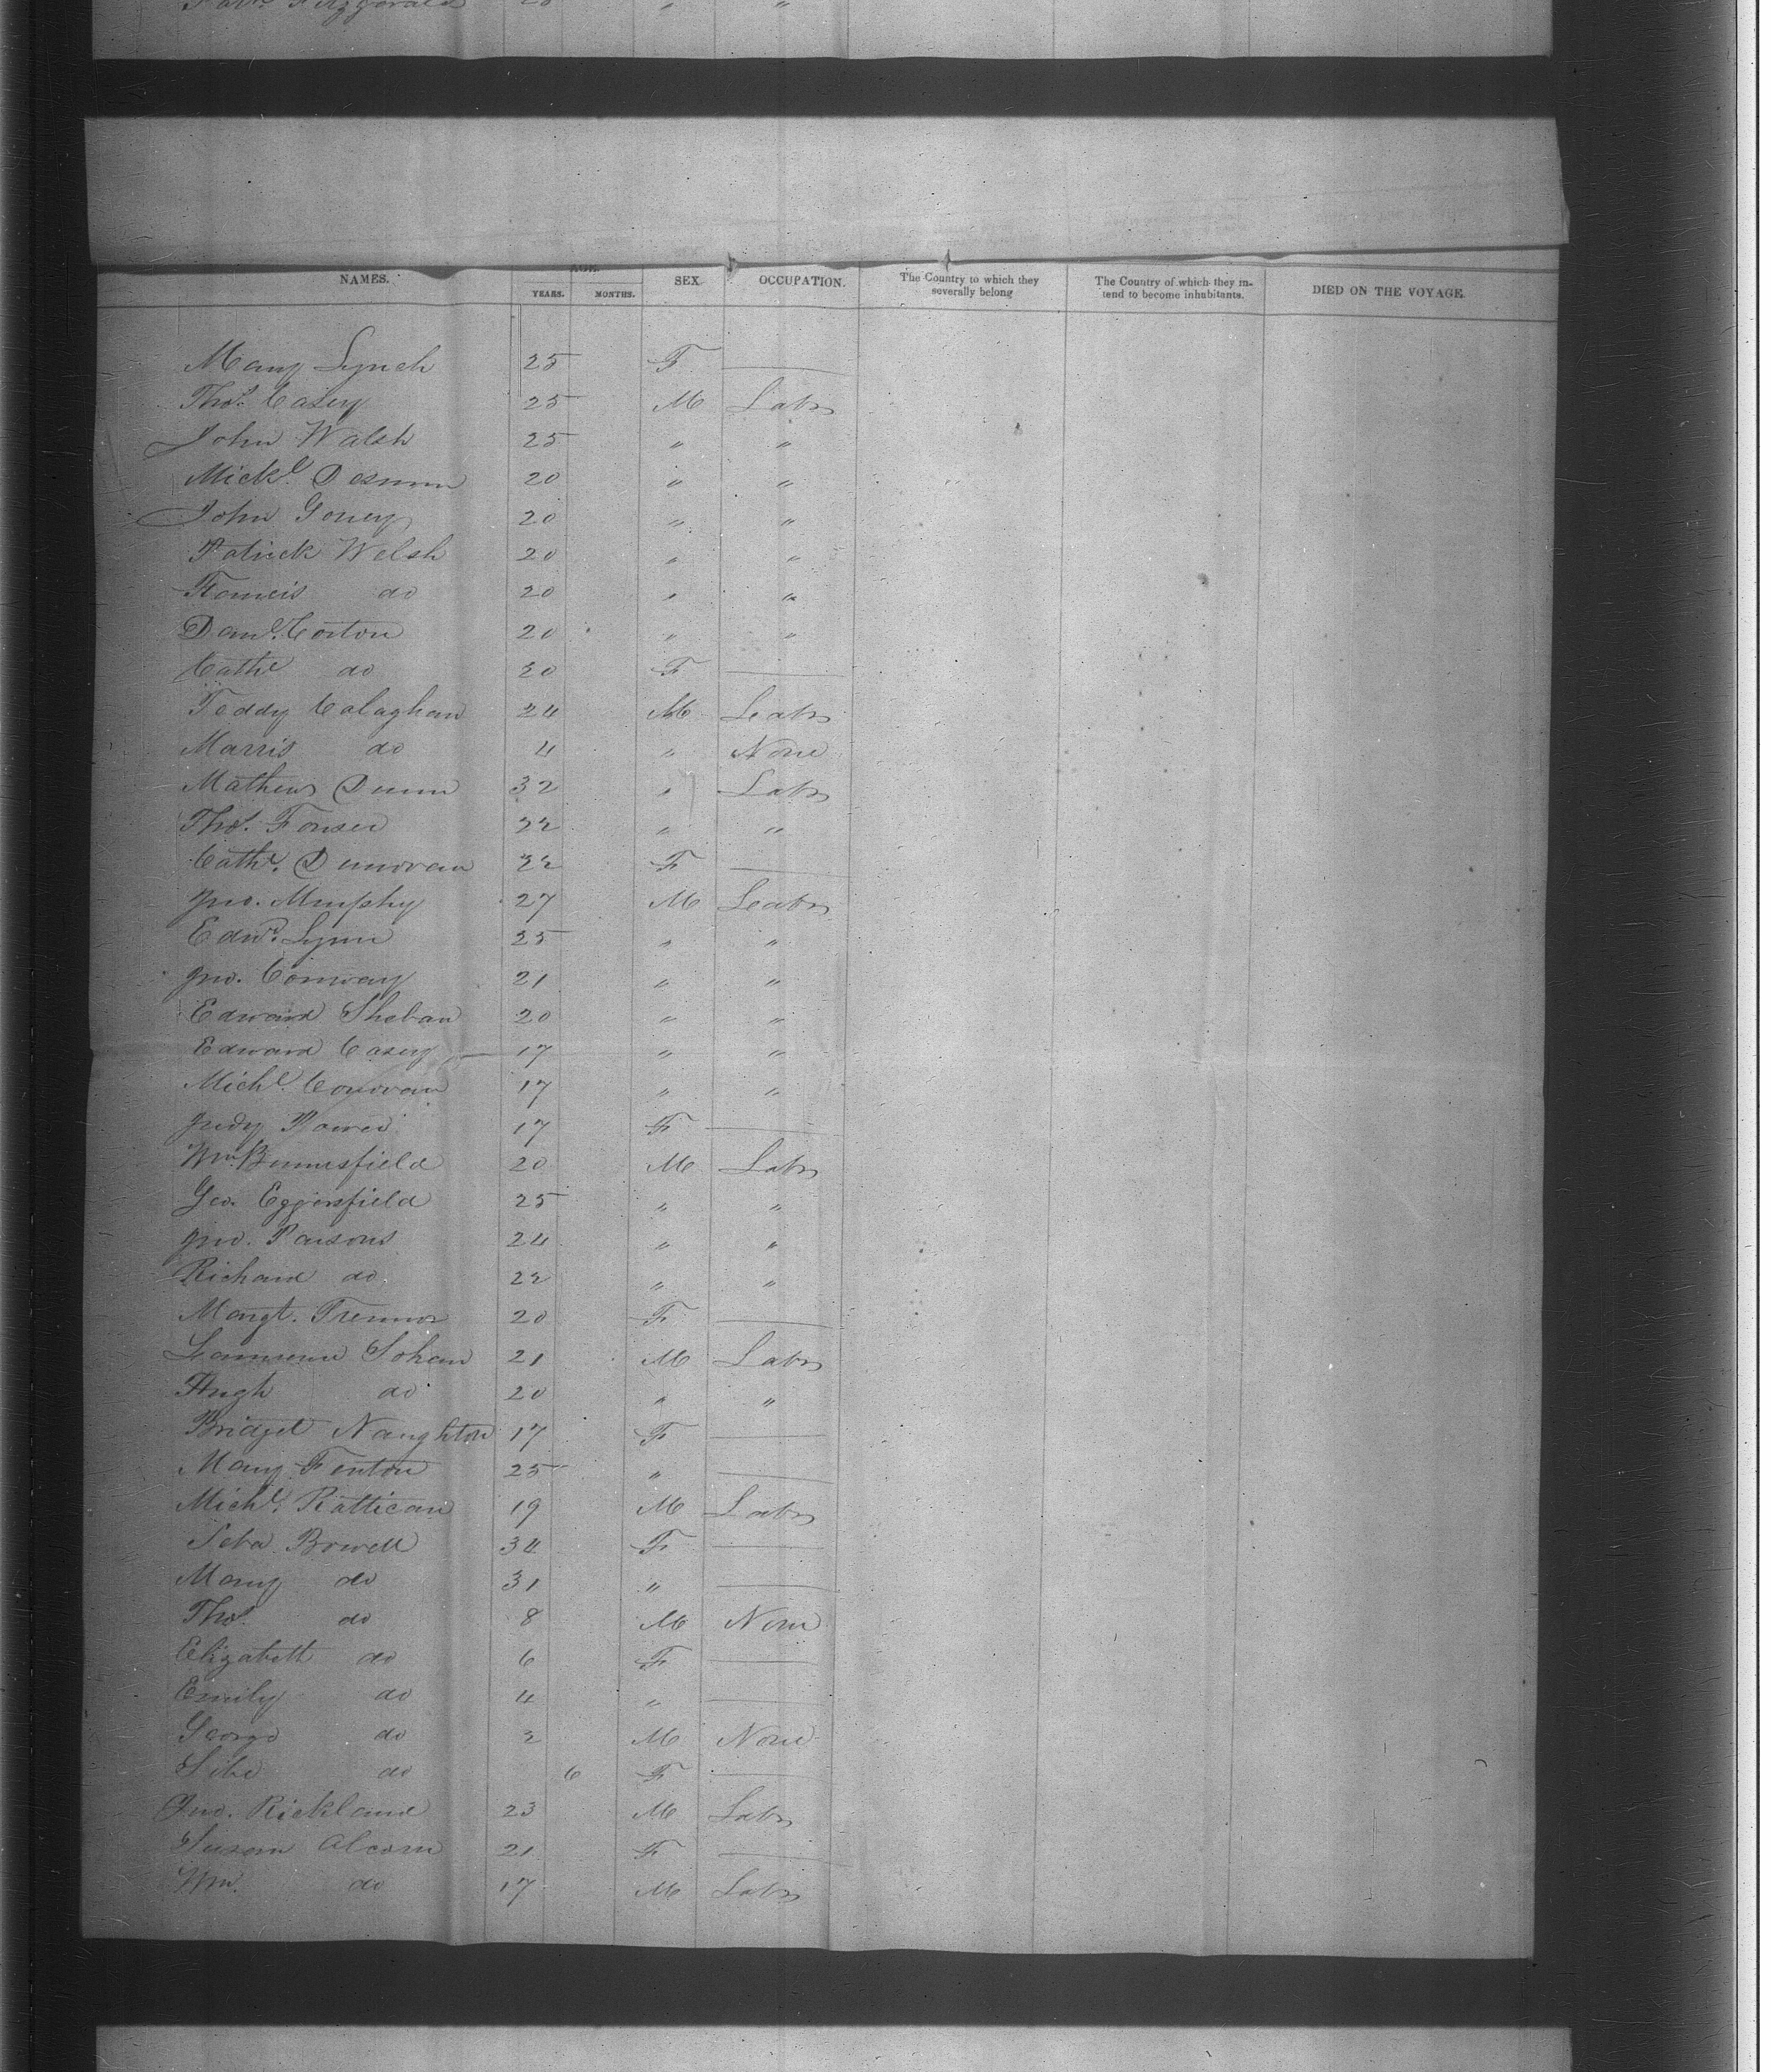 Fitzgerald 20 " "
NAMES. AGE. SEX. OCCUPATION. The Country to which they severally belong The Country of which they intend to become inhabitants. DIED ON THE VOYAGE.
YEARS. MONTHS.
Mary Lynch 25 F —
Thos. Casey 25 M Labr
John Walsh 25 " "
Mickl. 20 " "
John 20 " "
Patrick Welsh 20 " "
Francis do 20 " "
Danl. Corton 20 " "
Cathe do 20 F —
Teddy Calaghan 24 M Labr
Marris do 4 " None
Mathew Dunn 32 " Labr
Thos. 22 " "
Cathe. Dunovan 22 F —
Jno. Murphy 27 M Labr
Edwd. Lynn 25 " "
Jno. Conway 21 " "
Edward Sheban 20 " "
Edward Casey 17 " "
Michl. Conovan 17 " "
Judy Power 17 F —
Wm. 20 M Labr
Geo. Eggersfield 25 " "
Jno. Parsons 24 " "
Richard do 22 " "
Margt. Trennor 20 F —
Sohan 21 M Labr
Hugh do 20 " "
Bridget Naughton 17 F —
Mary Fenton 25 " —
Michl. Rattican 19 M Labr
Seba Browell 34 F —
Mary do 31 " —
Thos. do 8 M None
Elizabeth do 6 F —
Emily do 4 " —
George do 2 M None
do 6 F —
Jno. Rickland 23 M Labr
Susan Alcorn 21 F —
Wm. do 17 M Labr